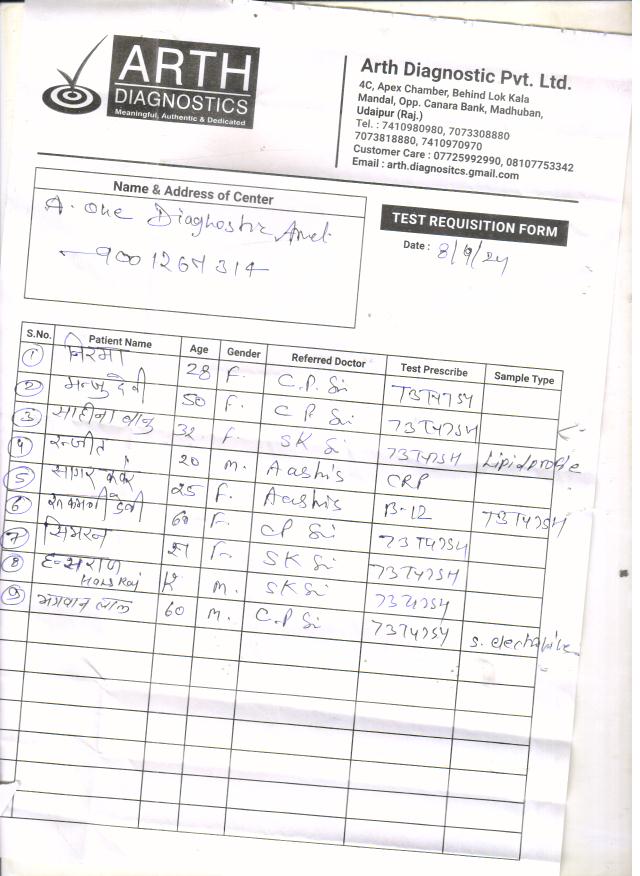 ARTH
DIAGNOSTICS
Meaningful, Authentic & Dedicated
Arth Diagnostic Pvt. Ltd.
4C, Apex Chamber, Behind Lok Kala
Mandal, Opp. Canara Bank, Madhuban,
Udaipur (Raj.)
Tel. : 7410980980, 7073308880
7073818880, 7410970970
Customer Care : 07725992990, 08107753342
Email : arth.diagnositcs.gmail.com
Name & Address of Center
A. one Diagnostic
TEST REQUISITION FORM
Date : 8/9/24
S.No. Patient Name Age Gender Referred Doctor Test Prescribe Sample Type
1 निरमा 28 F. C.P. Si T3T4TSH
2 मन्जु देवी 50 F. C P Si T3T4TSH
3 साहीना बानु 32 F. SK Si T3T4TSH Lipid profile
4 रन्जीत 20 M. Aashis CRP
5 सागर कंवर 25 F. Aashis B-12 T3T4TSH
6 देवी 60 F. CP Si T3T4TSH
7 सिमरन 21 F. SK Si T3T4TSH
8 हन्सराज M. SK Si T3T4TSH
Hans Raj
9 भगवान लाल 60 M. C.P Si T3T4TSH